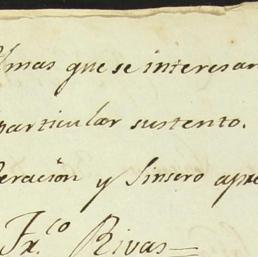 mas que se interesan
particular sustento.
eración y Sinsero apre
Fx.co Rivas